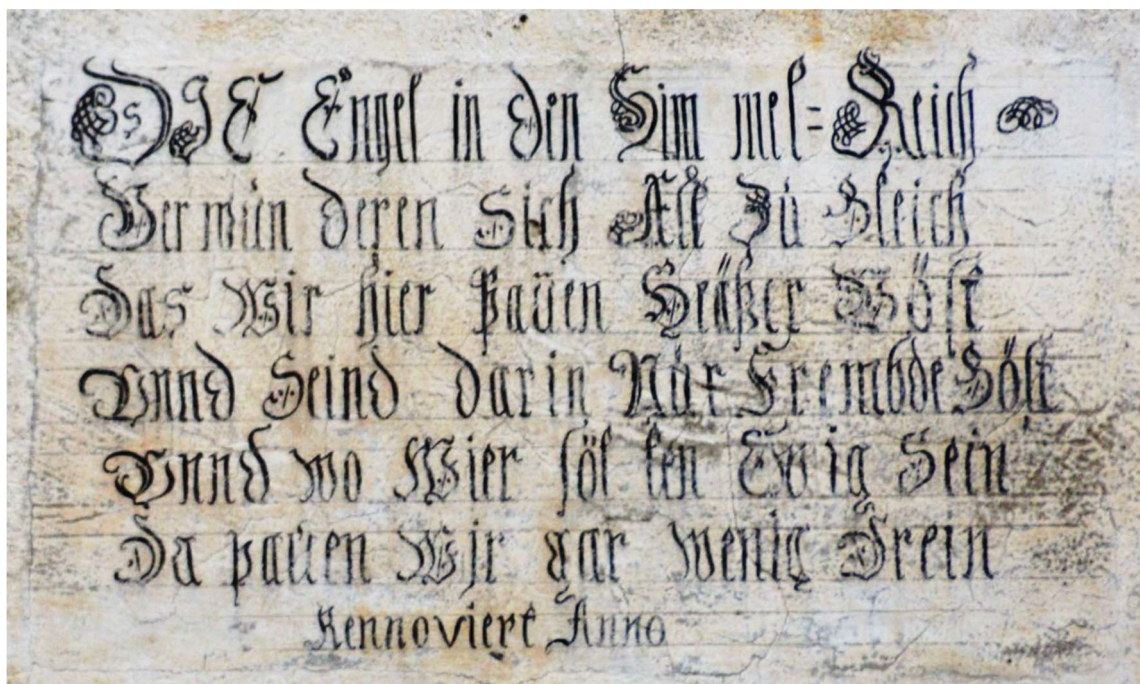 DIE Engel in den Him mel=Reich
Ver wún deren Sich All Zú Gleich
Das Wir hier paúen Heäßer Vöst
Vnnd Seind darin Núr Frembde Göst
Vnnd wo Wier söl len Ewig Sein
Da paúen Wjr gar wenig Drein
Rennoviert Anno